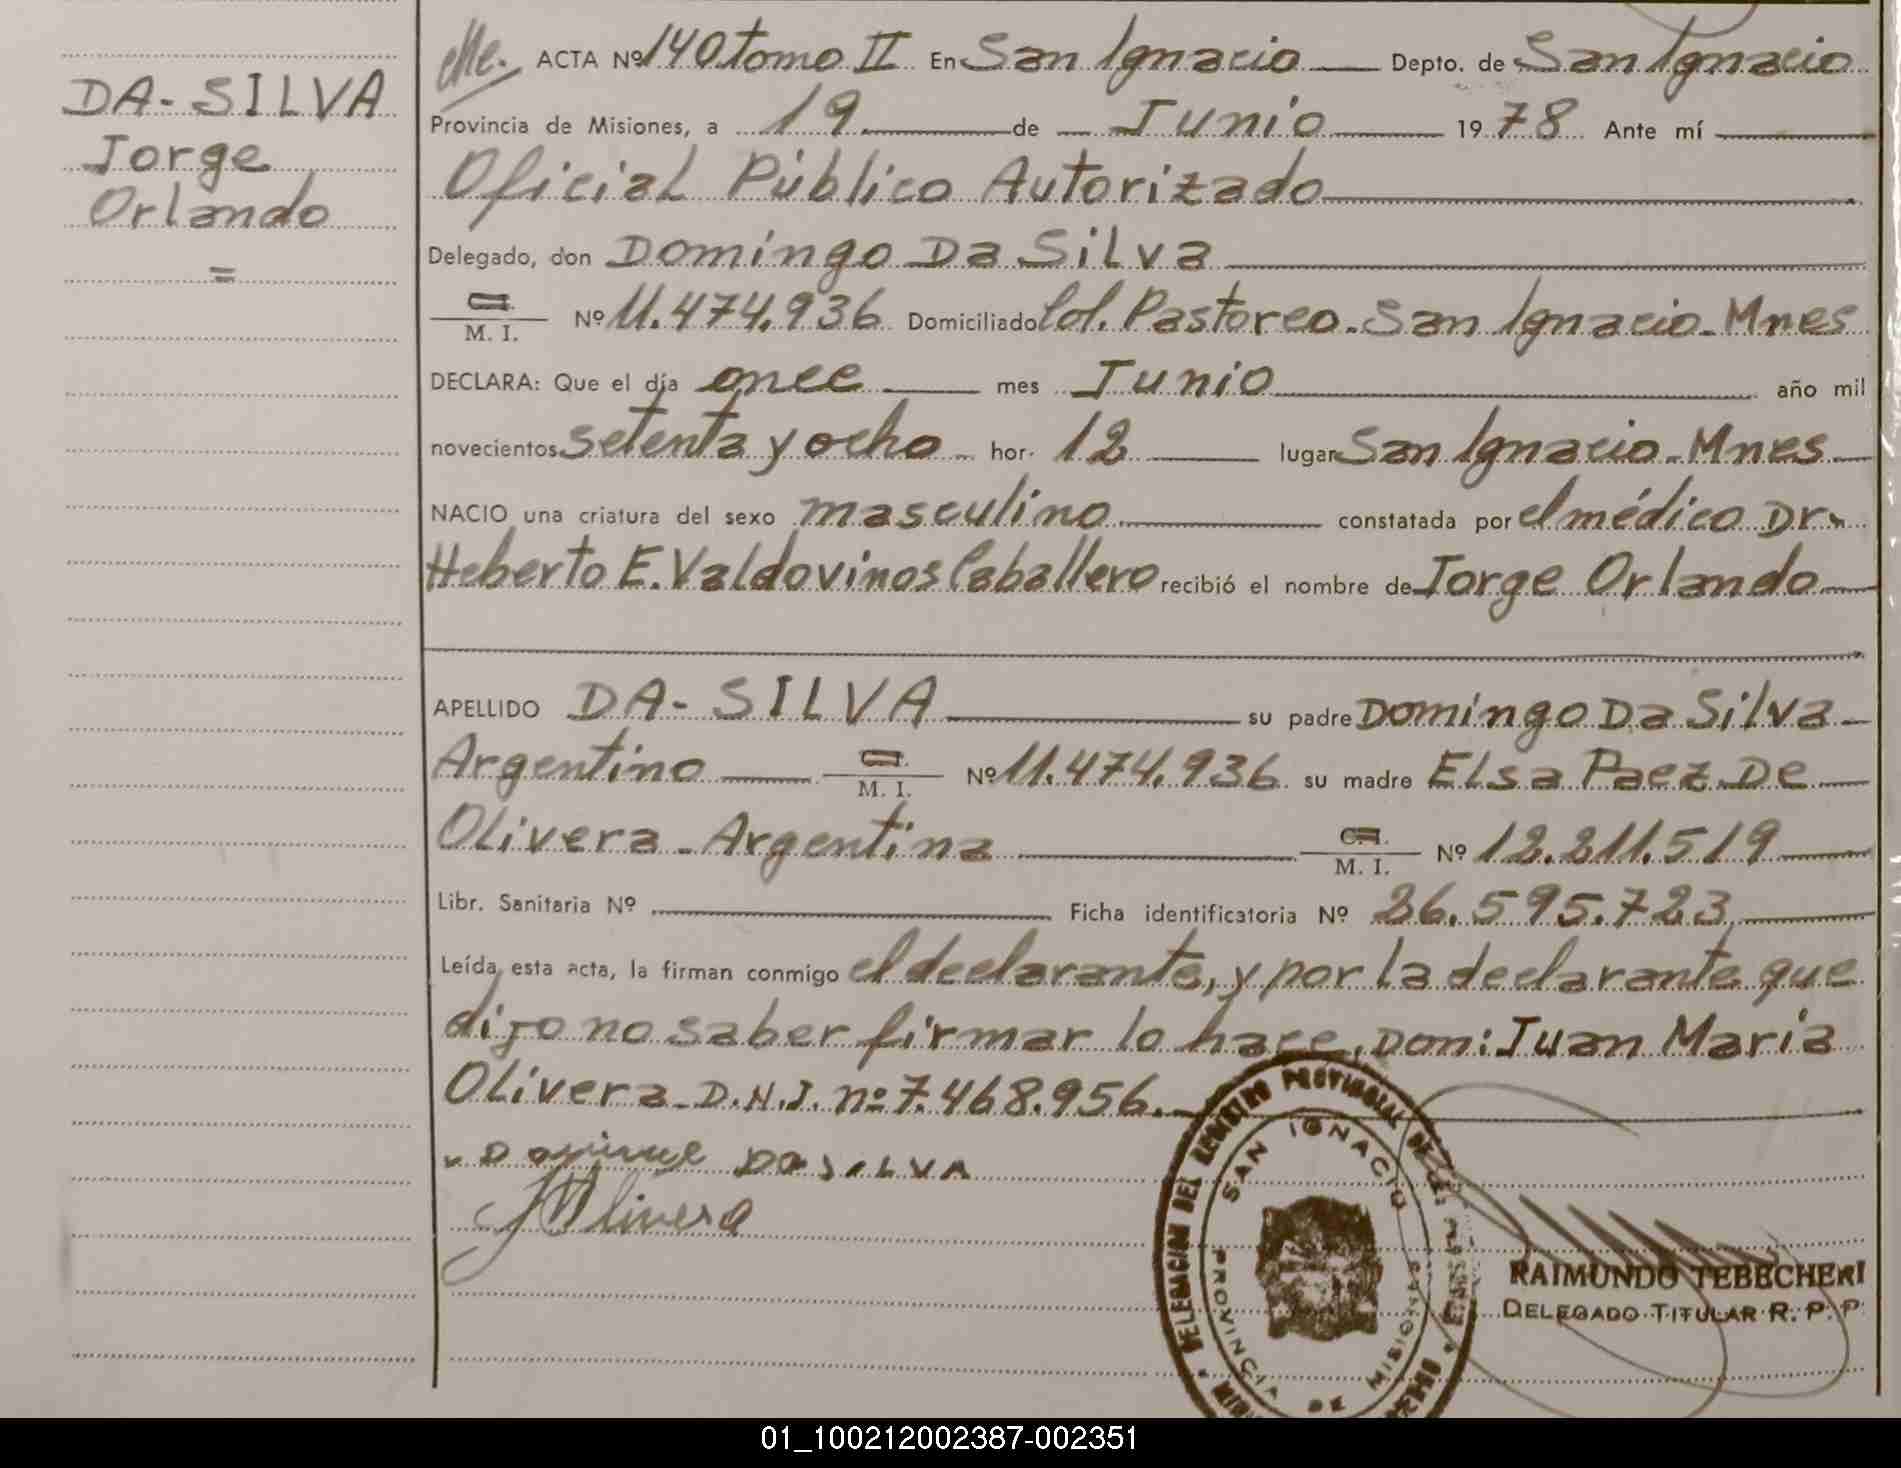 DA-SILVA
Jorge
Orlando
=
Me. ACTA Nº 140 tomo II En San Ignacio Depto. de San Ignacio
Provincia de Misiones, a 19 de Junio 1978 Ante mí
Oficial Público Autorizado
Delegado, don Domingo Da Silva
C.I.
M. I. Nº 11.474.936 Domiciliado Col. Pastoreo-San Ignacio-Mnes
DECLARA: Que el día once mes Junio año mil
novecientos setenta y ocho - hor. 12 lugar San Ignacio-Mnes
NACIO una criatura del sexo masculino constatada por el médico Dr.
Heberto E. Valdovinos Caballero recibió el nombre de Jorge Orlando
APELLIDO DA-SILVA su padre Domingo Da Silva
Argentino C.I. M. I. Nº 11.474.936 su madre Elsa Paez De
Olivera-Argentina C.I. M. I. Nº 12.211.519
Libr. Sanitaria Nº Ficha identificatoria Nº 26.595.723
Leída esta acta, la firman conmigo el declarante, y por la declarante que
dijo no saber firmar lo hace, Don: Juan María
Olivera D.N.I. nº 7.468.956.
DA SILVA
JMOlivera
DELEGACION DEL REGISTRO PROVINCIAL DE
SAN IGNACIO
PROVINCIA DE MISIONES
RAIMUNDO TEBECHERI
DELEGADO TITULAR R. P. P.
01_100212002387-002351